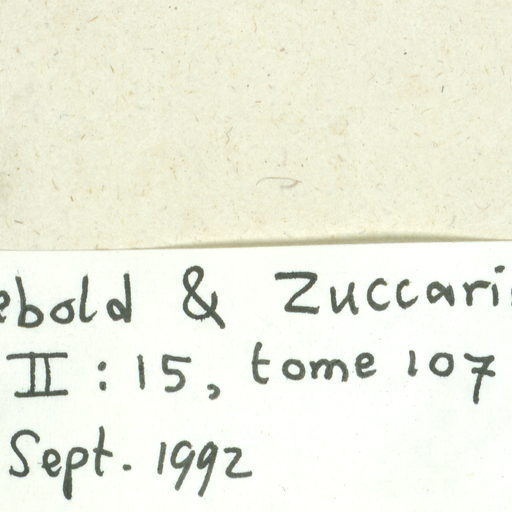 ebold & Zuccari
II : 15, tome 107
Sept. 1992